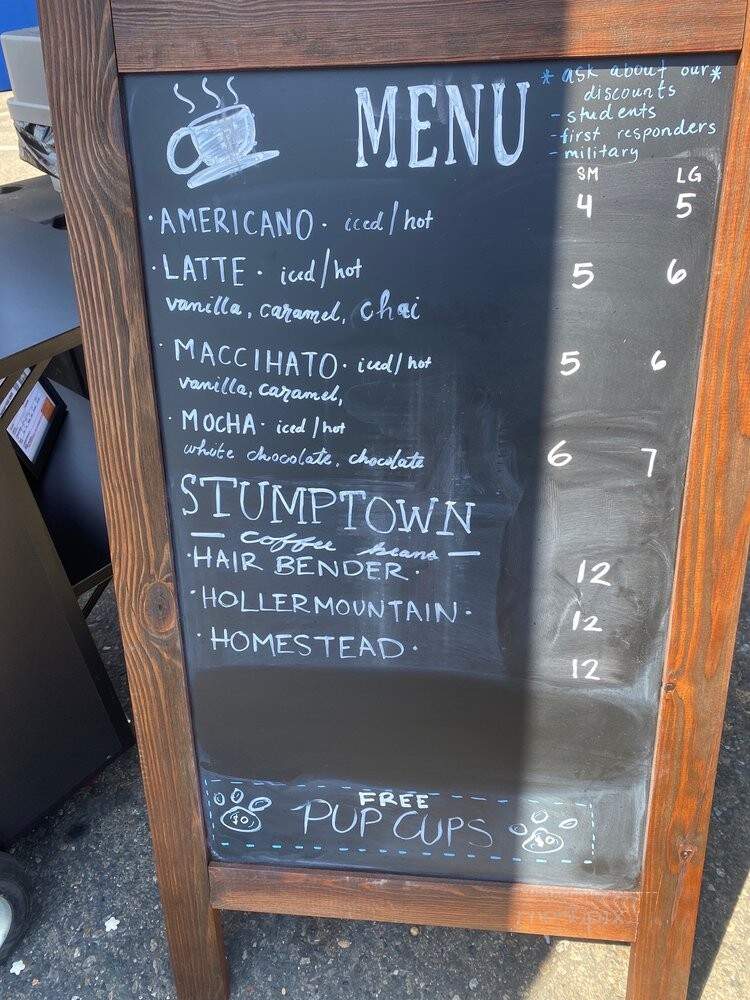 MENU
* ask about our *
discounts
- students
- first responders
- military
SM LG
· AMERICANO · iced/hot 4 5
· LATTE · iced/hot 5 6
vanilla, caramel, chai
· MACCIHATO · iced/hot 5 6
vanilla, caramel,
· MOCHA · iced/hot
white chocolate, chocolate 6 7
STUMPTOWN
— coffee beans —
· HAIR BENDER · 12
· HOLLER MOUNTAIN · 12
· HOMESTEAD · 12
FREE
$0 PUP CUPS $0